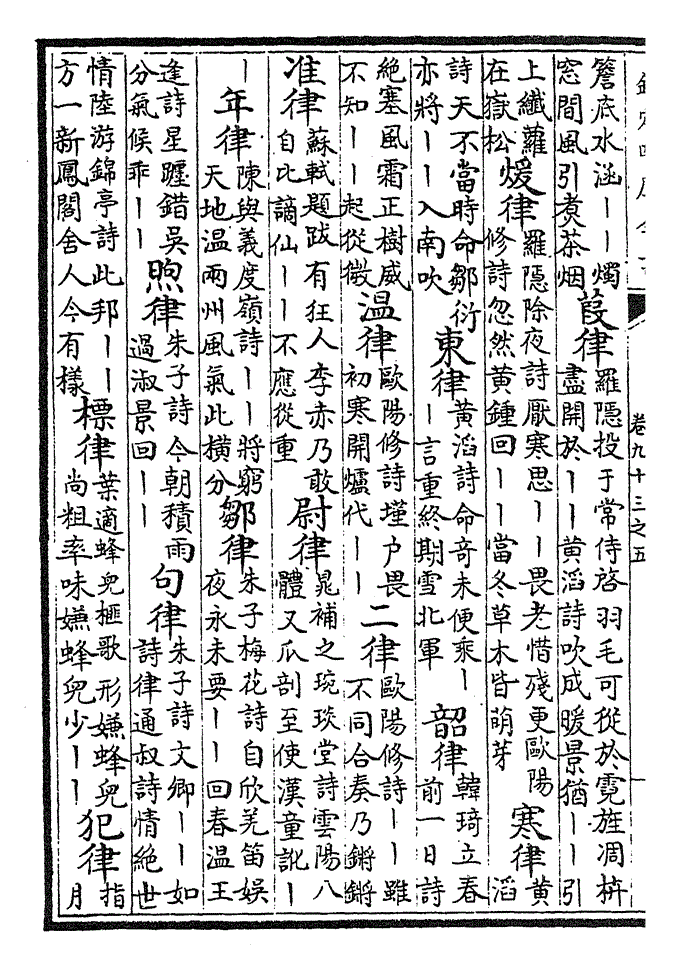 卷九十三之五
簷底水涵丨丨燭
窓間風引煮茶烟
葭律
羅隱投于常侍啓羽毛可從於霓旌凋枿
盡開於丨丨黄滔詩吹成暖景猶丨丨引
上纖蘿
在嶽松
煖律
羅隱除夜詩厭寒思丨丨畏老惜殘更歐陽
修詩忽然黄鍾回丨丨當冬草木皆萌芽
寒律
黄
滔
詩天不當時命鄒衍
亦將丨丨入南吹
東律
黄滔詩命奇未便乘丨
丨言重終期雪北軍
韶律
韓琦立春
前一日詩
絶塞風霜正樹威
不知丨丨起從微
温律
歐陽修詩墐户畏
初寒開爐代丨丨
二律
歐陽修詩丨丨雖
不同合奏乃鏘鏘
准律
蘇軾題跋有狂人李赤乃敢
自比謫仙丨丨不應從重
尉律
晁補之琬琰堂詩雲陽八
體又瓜剖至使漢童訛丨
丨
年律
陳與義度嶺詩丨丨將窮
天地温兩州風氣此横分
鄒律
朱子梅花詩自欣羌笛娱
夜永未要丨丨回春温王
逢詩星躔錯吳
分氣候乖丨丨
煦律
朱子詩今朝積雨
過淑景回丨丨
句律
朱子詩文卿丨丨如
詩律通叔詩情絶世
情陸游錦亭詩此邦丨丨
方一新鳳閣舍人今有樣
標律
葉適蜂兒榧歌形嫌蜂兒
尚粗率味嫌蜂兒少丨丨
犯律
指
月